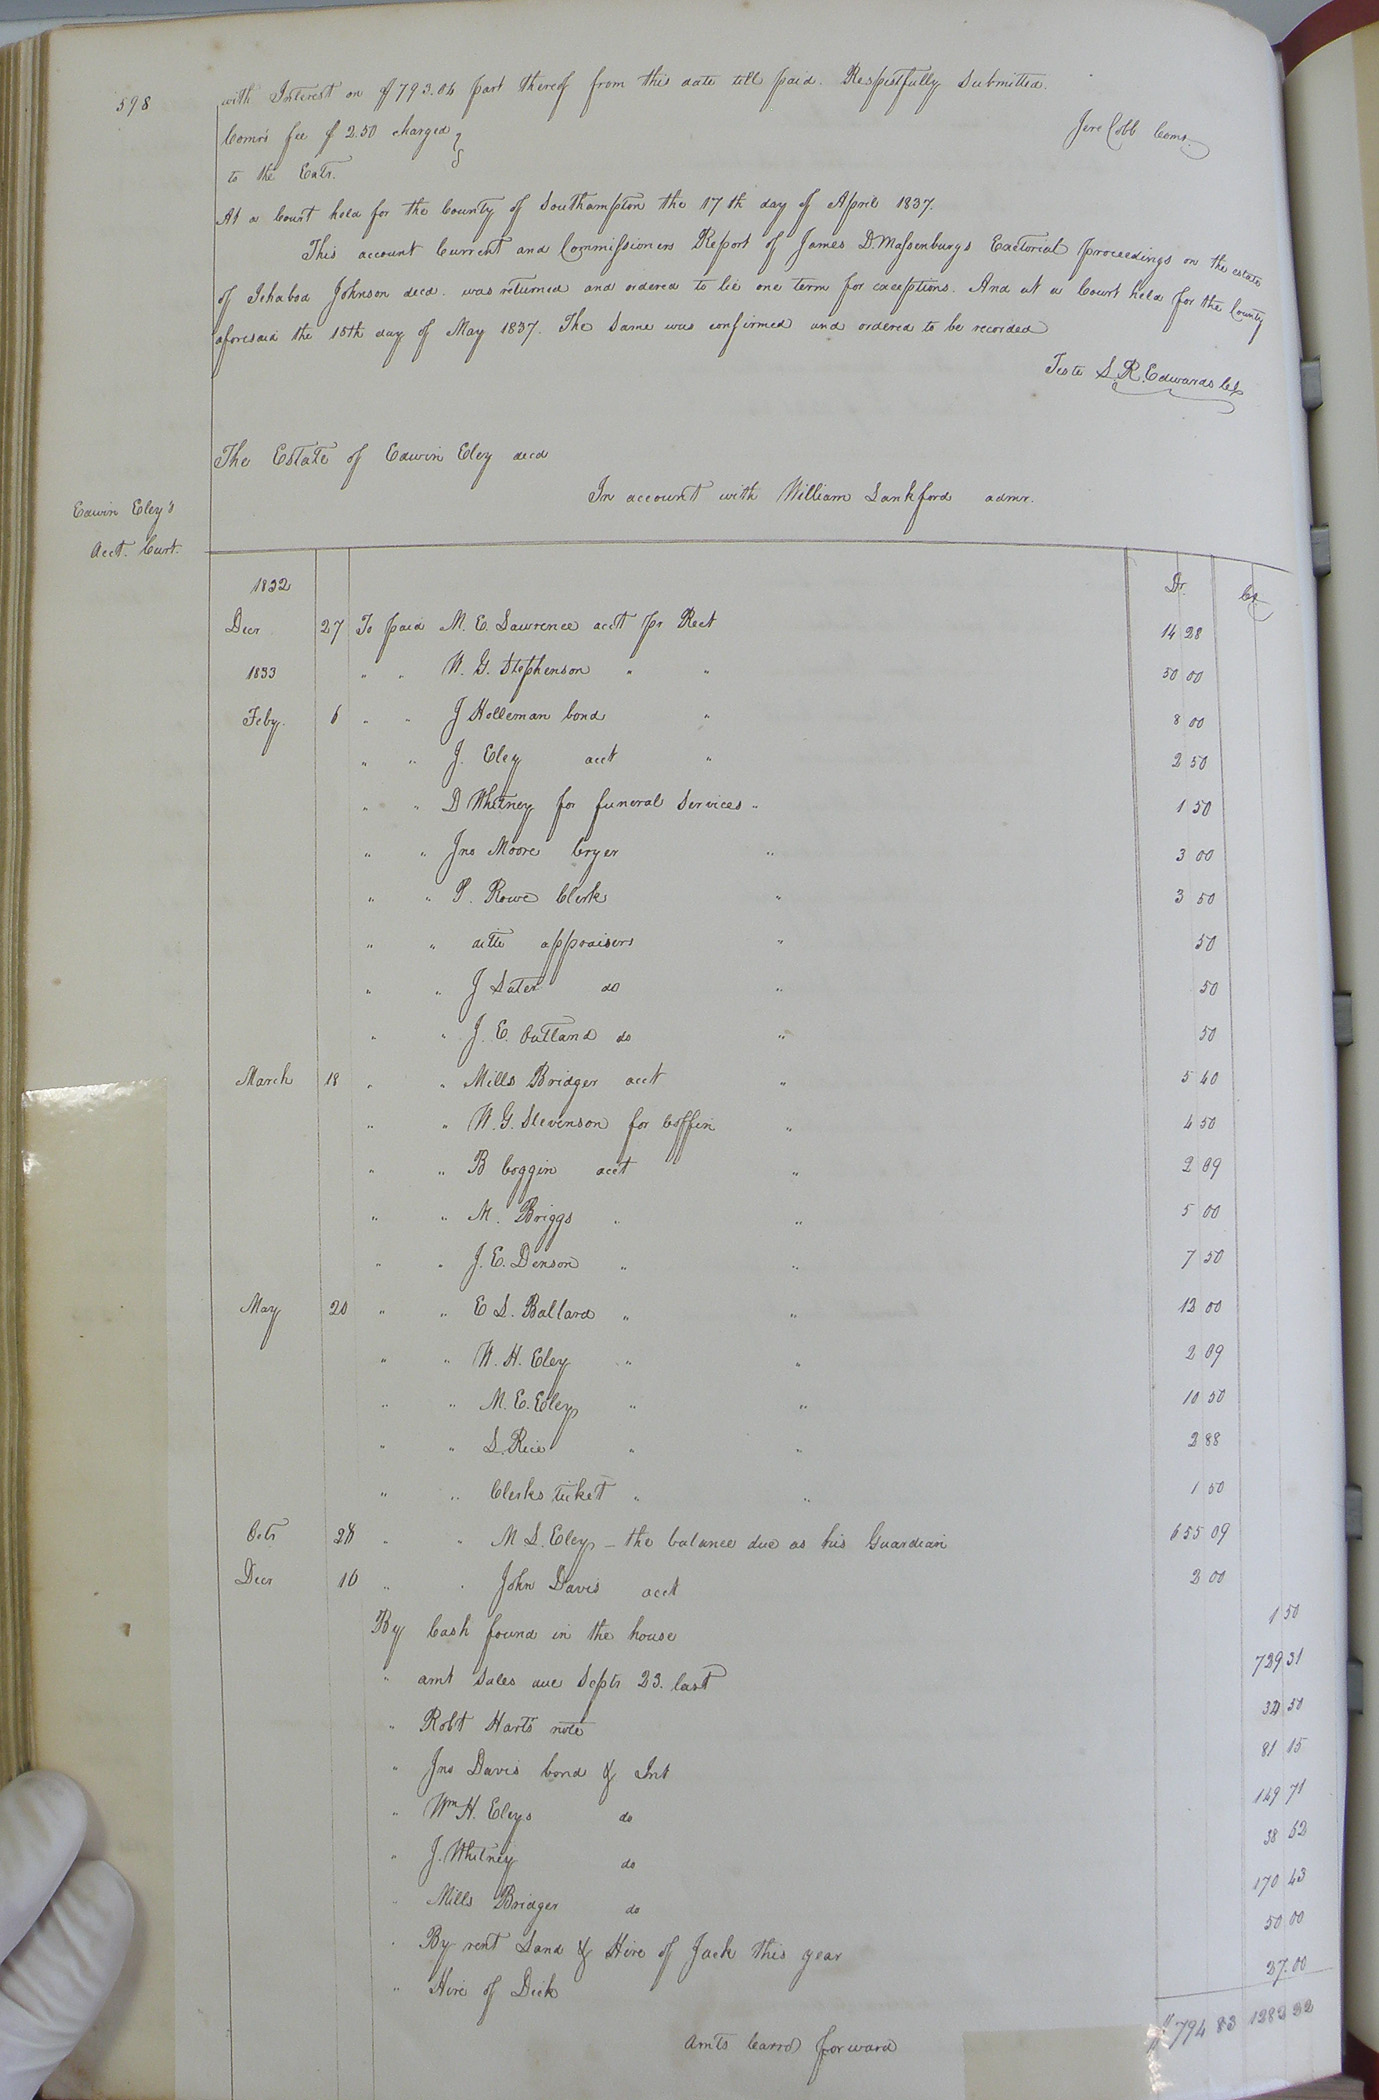 598
with Interest on $793.04 part thereof from this date till paid. Respectfully Submitted.
Comrs fee $2.50 charged
Jere Cobb Comr.
to the Extr.
At a Court held for the County of Southampton the 17th day of April 1837.
This account Current and Commissioners Report of James D. Massenburgs Exctorial proceedings on the estate
of Ichabod Johnson decd. was returned and ordered to lie one term for exceptions. And at a Court held for the County
aforesaid the 15th day of May 1837. The Same was confirmed and ordered to be recorded
Teste S. R. Edwards Clk
The Estate of Edwin Eley decd
In account with William Lankford admr.
Edwin Eley's
Acct. Curt.
1832 Dr. Cr.
Decr 27 To paid M. E. Lawrence acct pr Rect 14 28
1833 " " W. G. Stephenson " " 50 00
Feby. 6 " " J Holleman bond " 8 00
" " J. Eley acct " 2 50
" " D Whitney for funeral Services " 1 50
" " Jno Moore Cryer " 3 00
" " P. Rowe Clerk " 3 50
" " ditto appraisers " 50
" " J Sater do " 50
" " J. E. Outland do " 50
March 18 " " Mills Bridger acct " 5 40
" " W. G. Stevenson for Coffin " 4 50
" " B Coggin acct " 2 09
" " M. Briggs " " 5 00
" " J. E. Denson " " 7 50
May 20 " " E S. Ballard " " 12 00
" " W. H. Eley " " 2 09
" " M. E. Eley " " 10 50
" " S. Rice " " 2 88
" " Clerks ticket " " 1 50
Octr 28 " " M S. Eley - the balance due as his Guardian 655 09
Decr 16 " " John Davis acct 2 00
By Cash found in the house 1 50
" amt Sales due Septr 23. last 729 31
" Robt Harts note 50
" Jno Davis bond & Int 81 15
" Wm H. Eleys do 149 71
" J. Whitney do 38 52
" Mills Bridger do 170 43
" By rent Land & Hire of Jack this year 50 00
" Hire of Dick 27.00
Amts Carrd forward $794 83 1282 32